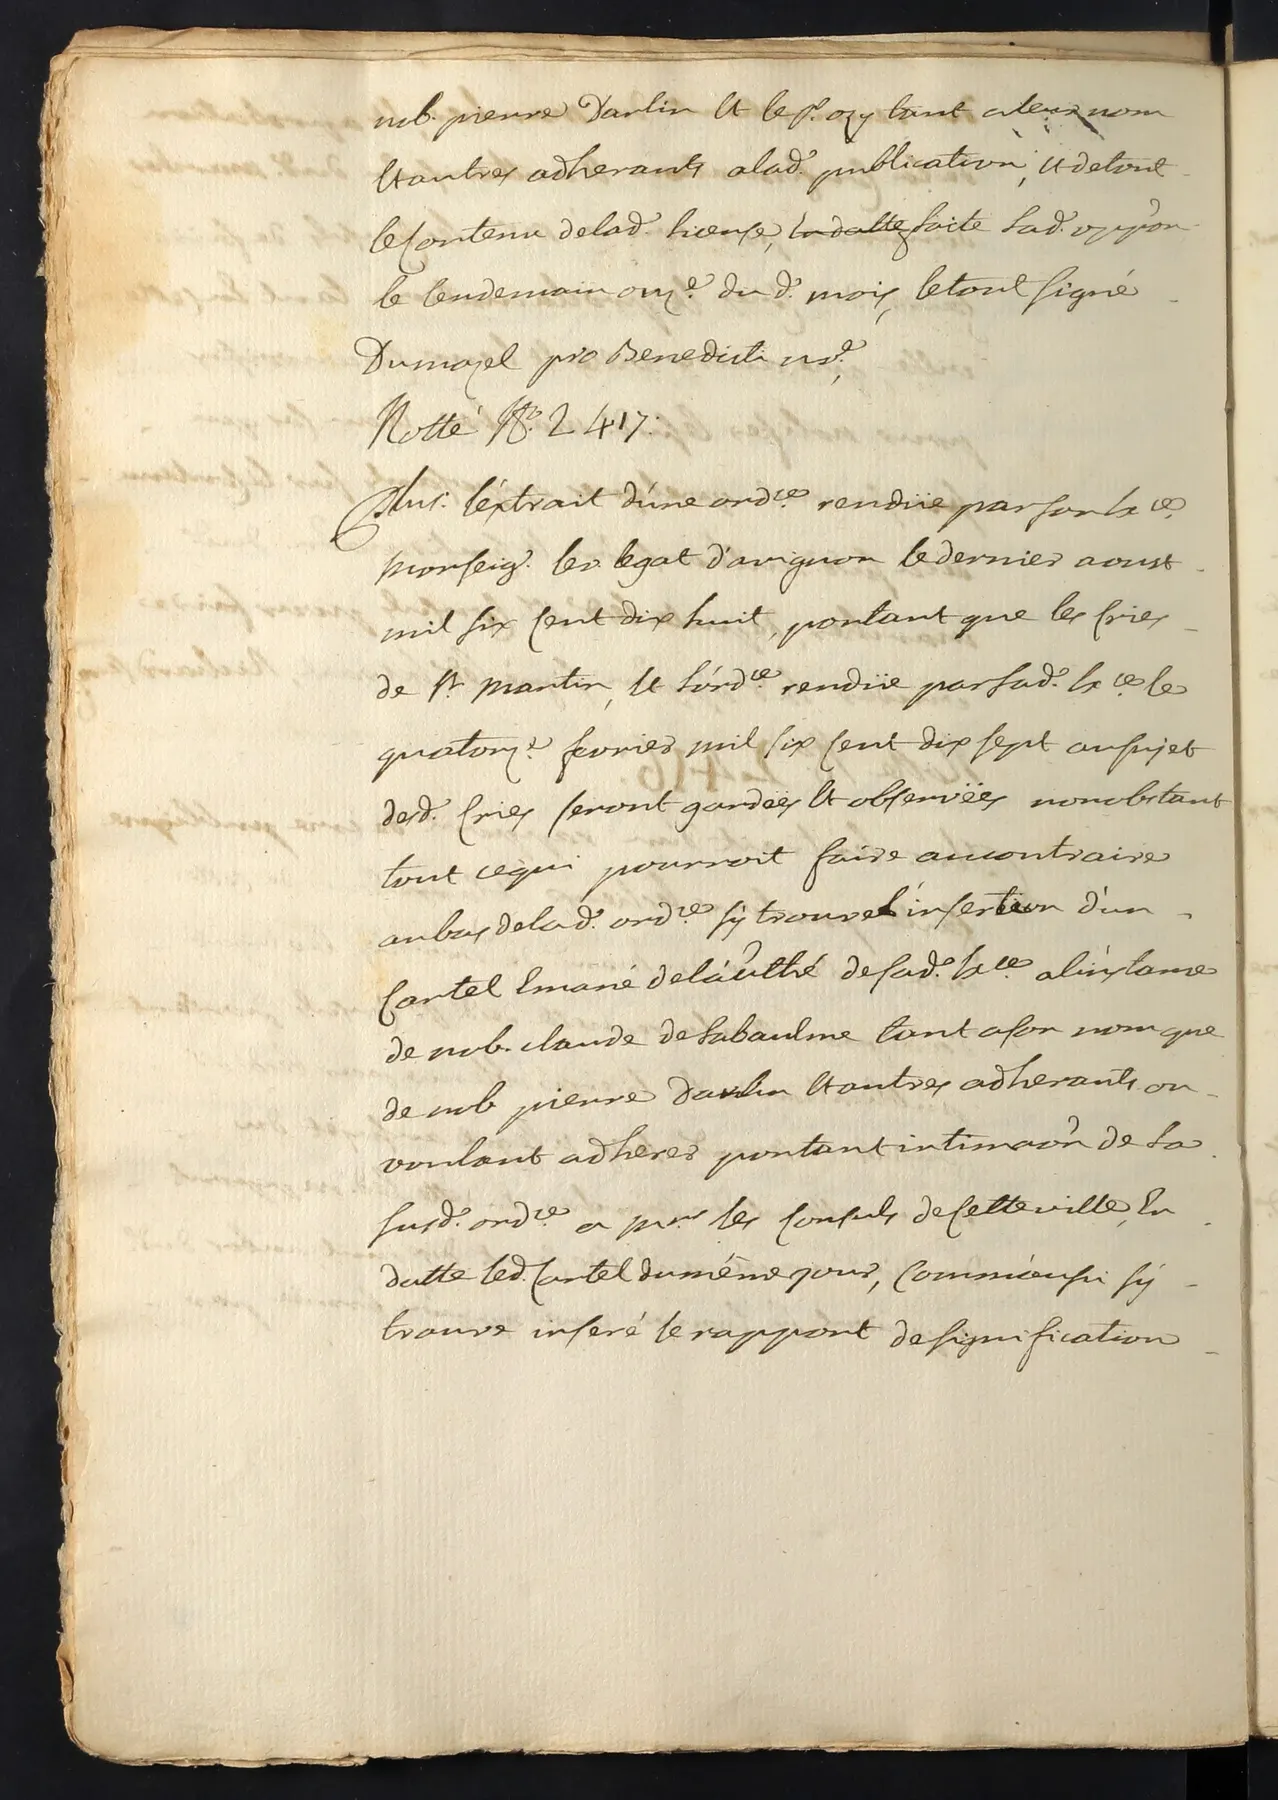 nob. pierre Darlin et le sr. ozy tant a leur nom
et autres adherants a lad.e publication, et de tout
le Contenu de lad.e license, en datte faite lad.e opp'on
le lendemain onz.e du d.e mois, le tout signé
Dumazel pro Benedicti
Notté No. 2417.
Plus. l'éxtrait d'une ord.ce rendüe par son Ex.ce
monseig.r le v. legat d'avignon le dernier aoust
mil six Cent dix huit, portant que les Cries
de st. martin, et l'órd.ce rendüe par sad.e Ex.ce le
quatorz.e fevrier mil six Cent dix sept au sujet
desd.e Cries seront gardeës et observëes nonobstant
tout ce qui pourroit faire au contraire
au bas de lad.e ord.ce s'ÿ trouve l'insertion d'un
Cartel Emané de l'áuthé de sad.e Ex.ce a l'instance
de nob. claude de labaulme tant a son nom que
de nob pierre Darlin et autres adherants ou
voulant adherer portant intimaõn de la
susd.e ord.ce a mrs. les Consuls de Cette ville, En
datte led. Cartel du même jour, Comm'áussi s'ÿ
trouve inseré le rapport de signification